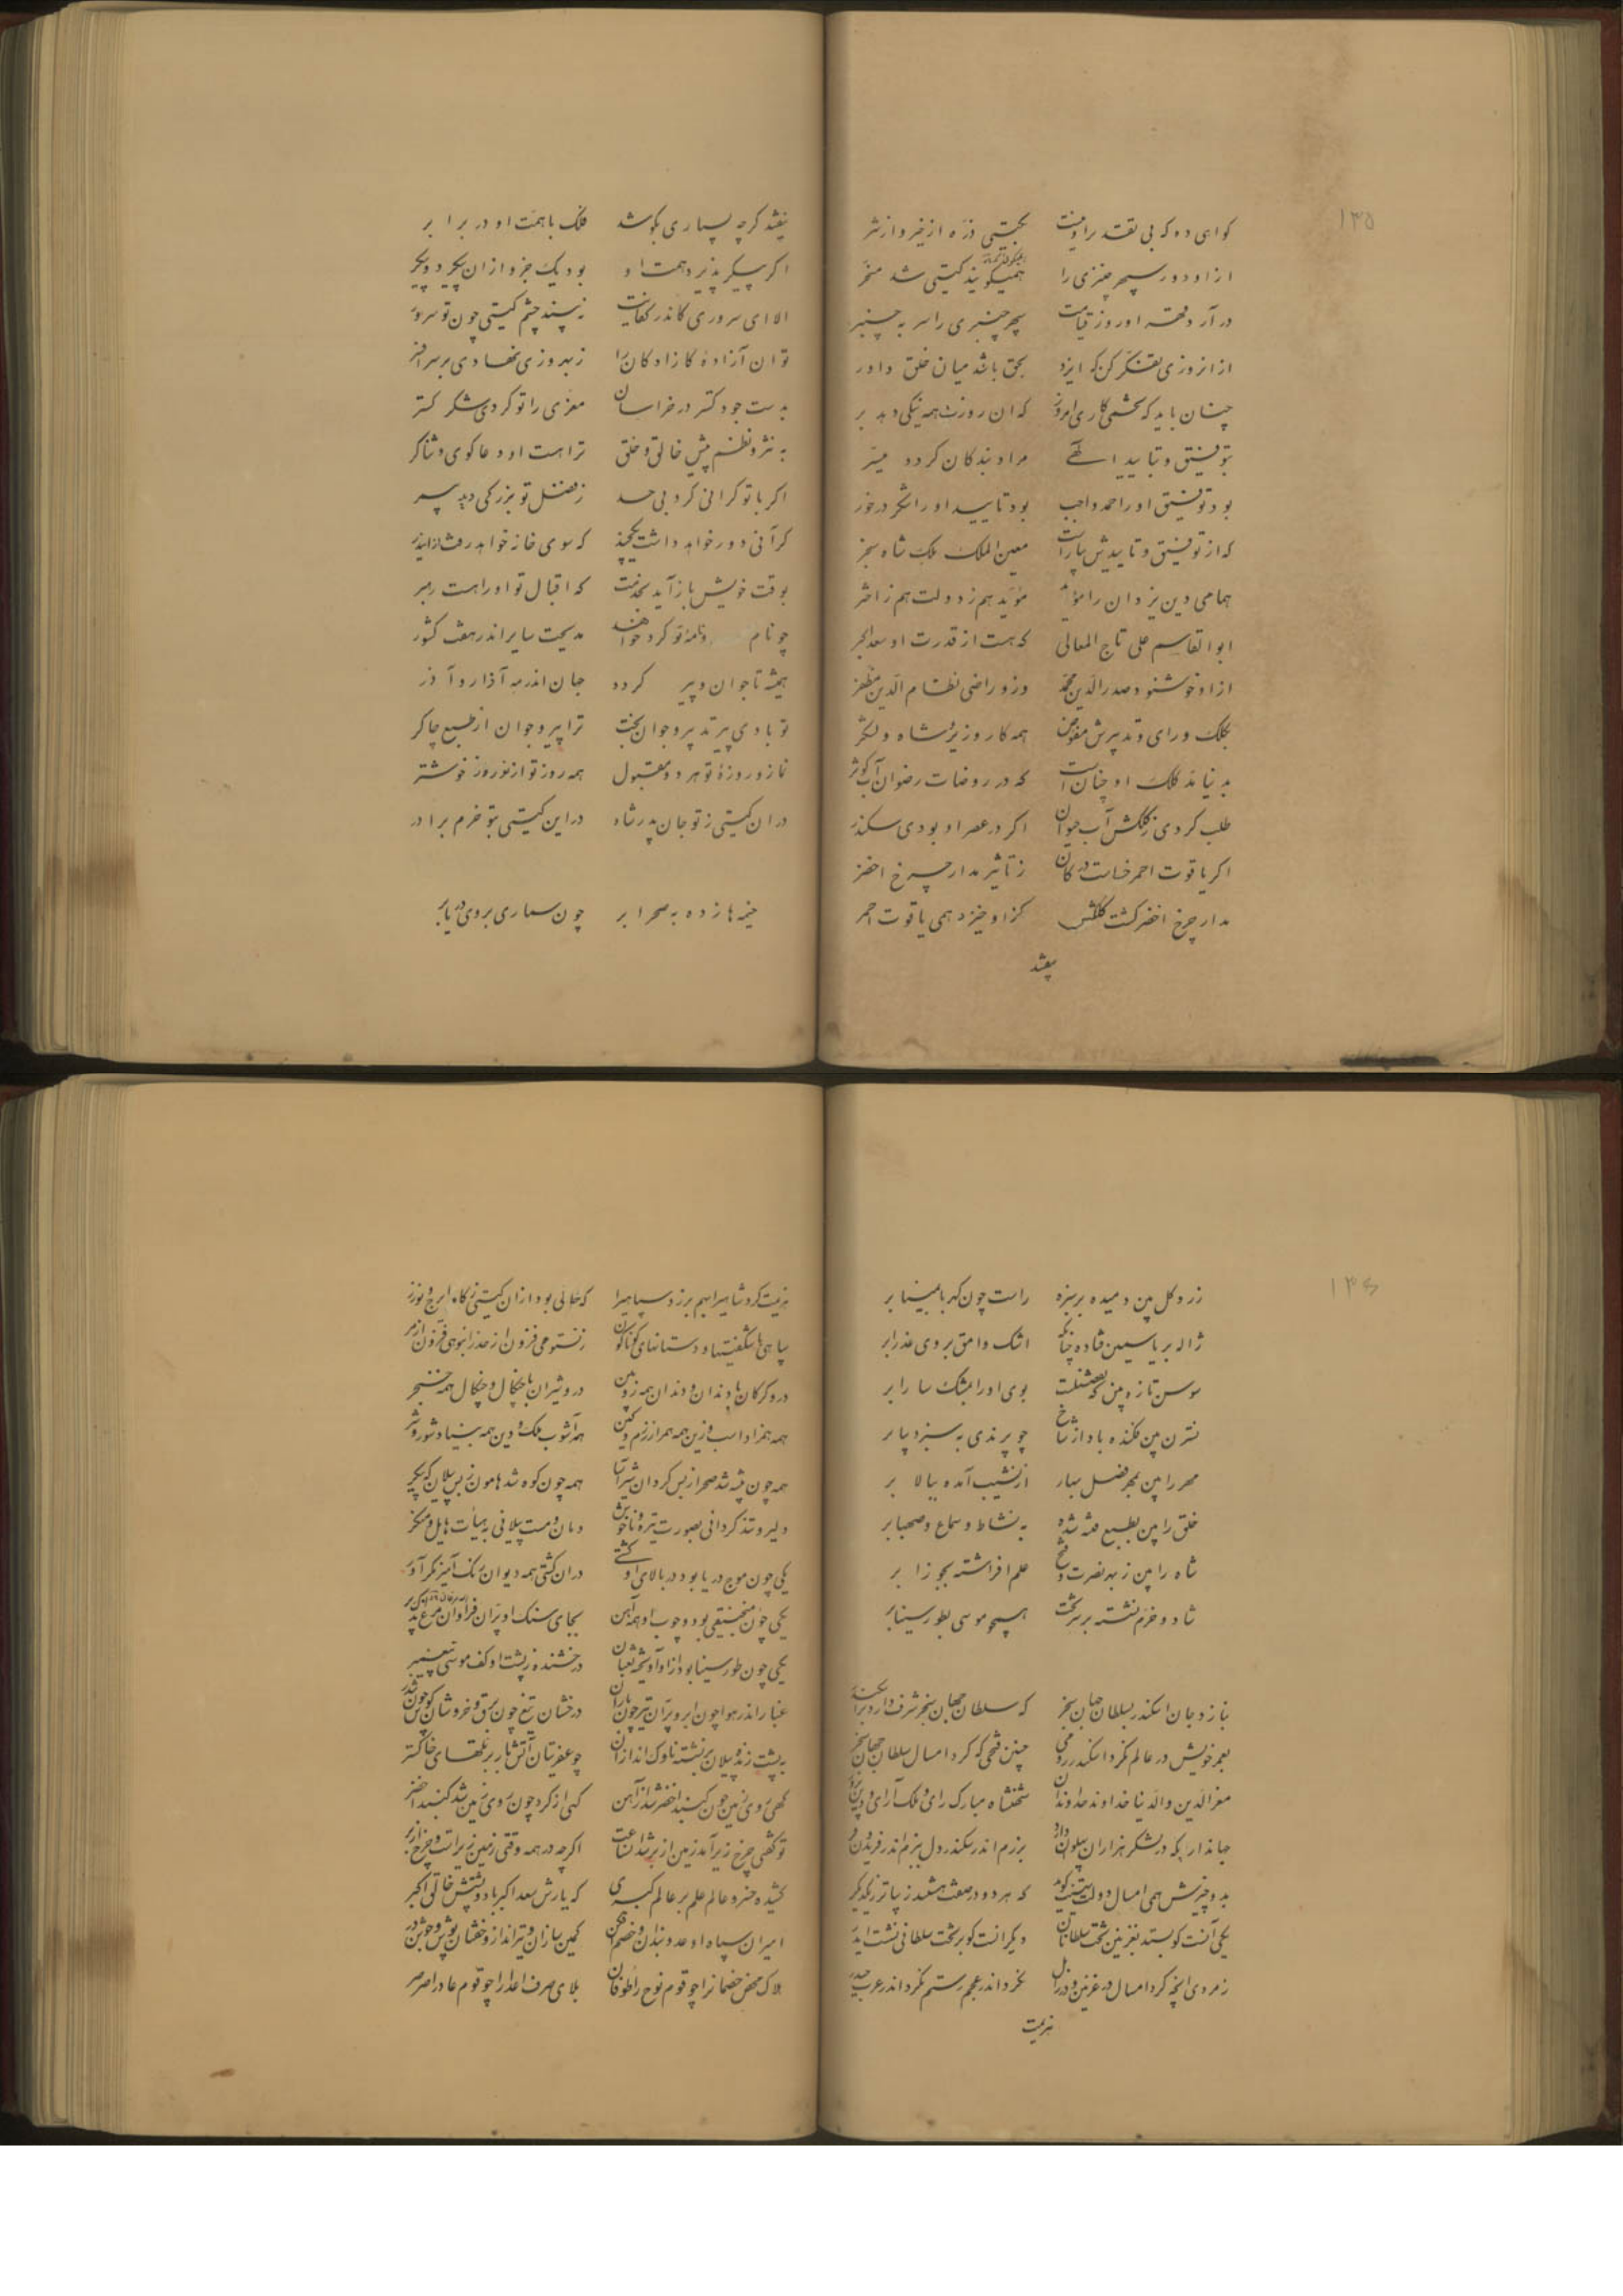 ۱۳۵
کواهی ده که بی تقدیر او نیست بکیتی ذره از خیر و از شر
از او دور سپهر چنبری را همیکویند کیتی شد مسخر
در آرد قهر او روز قیامت سپهر چنبری را سر به چنبر
از انروزی تفکر کن که ایزد بحق باشد میان خلق داور
چنان باید که تخمی کاری امروز که ان روزت همه نیکی دهد بر
بتوفیق و تایید الهی مراد بندکان کردد میسر
بود توفیق اورا حمد واجب بود تایید او را شکر درخور
که از توفیق و تاییدش بیاراست معین الملک ملک شاه سنجر
همامی دین یزدان را مؤید مؤید هم ز دولت هم ز اختر
ابوالقاسم علی تاج المعالی که هست از قدرت او سعد اکبر
از او خوشنود صدرالدین محمد وزو راضی نظام الدین مظفر
بکلک و رای و تدبیرش مفوض همه کار وزیر و شاه و لشکر
به دنیا مد کلک او چنان است که در روضات رضوان آب کوثر
طلب کردی ز کلکش آب حیوان اکر در عصر او بودی سکندر
اکر یاقوت احمر خاست در کان ز تاثیر مدار چرخ اخضر
مدار چرخ اخضر کشت کلکش کزاو خیزد همی یاقوت احمر
بیفتد
بیفتد کرچه بسیاری بکوشد فلک با همت او در برابر
اکر پیکر پذیرد همت او بود یک جزو از ان پیکر دو پیکر
الا ای سروری کاندر کفایت نه پسند چشم کیتی چون تو سرور
تو ان آزاده کازادکان را ز بهروزی نهادی بر سر افسر
بدست جود کستر در خراسان معزی را تو کردی شکر کستر
به نثر و نظم پیش خالق و خلق ترا هست او دعا کوی و ثناکر
اکر با تو کرانی کرد بی حد ز فضل تو بزرکی دید بی مر
کرآنی دور خواهد داشت یکچند که سوی خانه خواهد رفت از ایدر
بوقت خویش باز آید بخدمت که اقبال تو او را هست رهبر
چو نام و نامهٔ تو کرد خواهند مدیحت سایر اندر هفت کشور
همیشه تا جوان و پیر کردد جهان اندر مه آذار و آذر
تو بادی پیر تدبیر و جوان بخت ترا پیر و جوان از طبع چاکر
نماز و روزهٔ تو هر دو مقبول همه روز تو از نوروز خوشتر
در ان کیتی ز تو جان پدر شاد در این کیتی بتو خرم برادر
خیمه ها زده به صحرا بر چون سماری بروی دریا بر
۱۳۶
زرد کل بین دمیده بر سبزه راست چون کهربا بمینا بر
ژاله بر یاسمین فتاده چنانکه اشک وامق بروی عذرا بر
سوسن تازه بین که بعصفت بوی او را بمشک سارا بر
نسترن بین فکنده باد از شاخ چو پرندی به سبز دیبا بر
مهر را بین بمهر فصل بهار از نشیب آمده ببالا بر
خلق را بین بطبع فتنه شده به نشاط و سماع و صهبا بر
شاه را بین ز بهر نصرت و فتح علم افراشته بجوزا بر
شاد و خرم نشسته بر تخت همچو موسی بطور سینا بر
بنازد جان اسکندر بسلطان جهان سنجر که سلطان جهان سنجر شرف دارد بر اسکندر
بعمر خویش در عالم نکرد اسکندر رومی چنین فتحی که کرد امسال سلطان جهان سنجر
معزالدین والدنیا خداوند خداوندان شهنشاه مبارک رای و ملک آرای و دین پرور
جهانداری که در لشکر هزاران پهلوان دارد برزم اندر سکندر دل ببزم اندر فریدون فر
بدو چیزش همی امسال دولت تهنیت کوید که هر دو در صفت هستند زیباتر ز یکدیکر
یکی آنست کو بستد بغزنین تخت سلطانان دیکر انست کو بر تخت سلطانی نشست ایدر
ز مردی انچه کرد امسال در غزنین و در زابل نکرد اندر عجم رستم نکرد اندر عرب حیدر
هزیمت
هزیمت کرد شاهی را بهم برزد سپاهی را که خالی بود از ان کیتی ز کاه ایرج و نوذر
سپاهی با شکفتیها و دستانهای کوناکون ز نستوهی فزون از حد ز انبوهی فزون از مر
درو کرکان با دندان و دندان همه زوبین درو شیران با چنکال و چنکال همه خنجر
همه همزاد اسب و زین همه همراز رزم و کین همه آشوب ملک و دین همه بنیاد شور و شر
همه چون بیشه شد صحرا ز بس کردان شیر آسا همه چون کوه شد هامون ز بس پیلان که پیکر
دلیر و تند کردانی بصورت تیره و ناخوش دمان و مست پیلانی به هیأت هایل و منکر
یکی چون موج دریا بود در بالای او کشتی در ان کشتی همه دیوان رنک آمیز نکرآور
یکی چون منجنیقی بود و چوب او همه آهن بجای سنک او پران فراوان مرغ بی پر
یکی چون طور سینا بود ازاو آویخته ثعبان درخشنده ز پشت او کف موسی پیغمبر
غبار اندر هوا چون ابر و پران تیر چون باران درخشان تیغ چون برق و خروشان کوس چون تندر
به پشت زنده پیلان بر نشسته ناوک اندازان چو عفریتان آتش بار بر تلهای خاکستر
کهی روی زمین چون کنبد اخضر شد از آهن کهی از کرد چون روی زمین شد کنبد اخضر
تو کفتی چرخ زیر آمد زمین از بر شد ان ساعت اکرچه در همه وقتی زمین زیر است و چرخ از بر
کشیده خسرو عالم علم بر عالم کبری که یارش سعد اکبر باد و پشتش خالق اکبر
امیران سپاه او عدو بندان و خصم افکن کمین سازان و تیرانداز و خفتان پوش و جوشن در
هلاک محض خصمانرا چو قوم نوح را طوفان بلای صرف اعدا را چو قوم عاد را صرصر